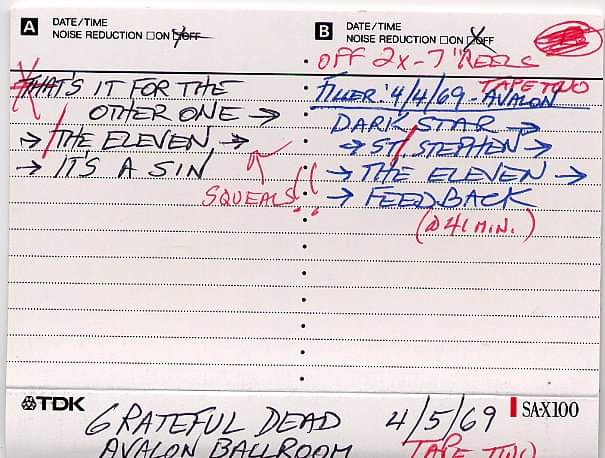 A DATE/TIME
NOISE REDUCTION □ON □OFF
THAT'S IT FOR THE
OTHER ONE →
→ THE ELEVEN →
→ IT'S A SIN
SQUEALS!!
B DATE/TIME
NOISE REDUCTION □ON □OFF
OFF 2X-7" REELS
TAPE TWO
FILLER: 4/4/69 - AVALON
DARK STAR →
→ ST/STEPHEN →
→ THE ELEVEN →
→ FEEDBACK
(@41 MIN.)
TDK GRATEFUL DEAD 4/5/69 SA-X100
AVALON BALLROOM TAPE TWO